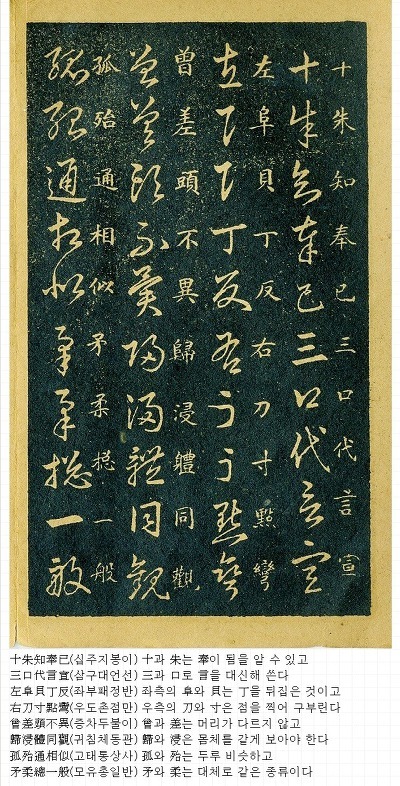 十朱知奉已三口代言宣
十朱知奉已三口代言宣
左阜貝丁反右刀寸點彎
左阜貝丁反右刀寸點彎
曾差頭不異歸浸體同觀
曾差頭不異歸浸體同觀
孤殆通相似矛柔捴一般
孤殆通相似矛柔捴一般
十朱知奉已(십주지봉이) 十과 朱는 奉이 됨을 알 수 있고
三口代言宣(삼구대언선) 三과 口로 言을 대신해 쓴다
左阜貝丁反(좌부패정반) 좌측의 阜와 貝는 丁을 뒤집은 것이고
右刀寸點彎(우도촌점만) 우측의 刀와 寸은 점을 찍어 구부린다
曾差頭不異(증차두불이) 曾과 差는 머리가 다르지 않고
歸浸體同觀(귀침체동관) 歸와 浸은 몸체를 같게 보아야 한다
孤殆通相似(고태통상사) 孤와 殆는 두루 비슷하고
矛柔總一般(모유총일반) 矛와 柔는 대체로 같은 종류이다